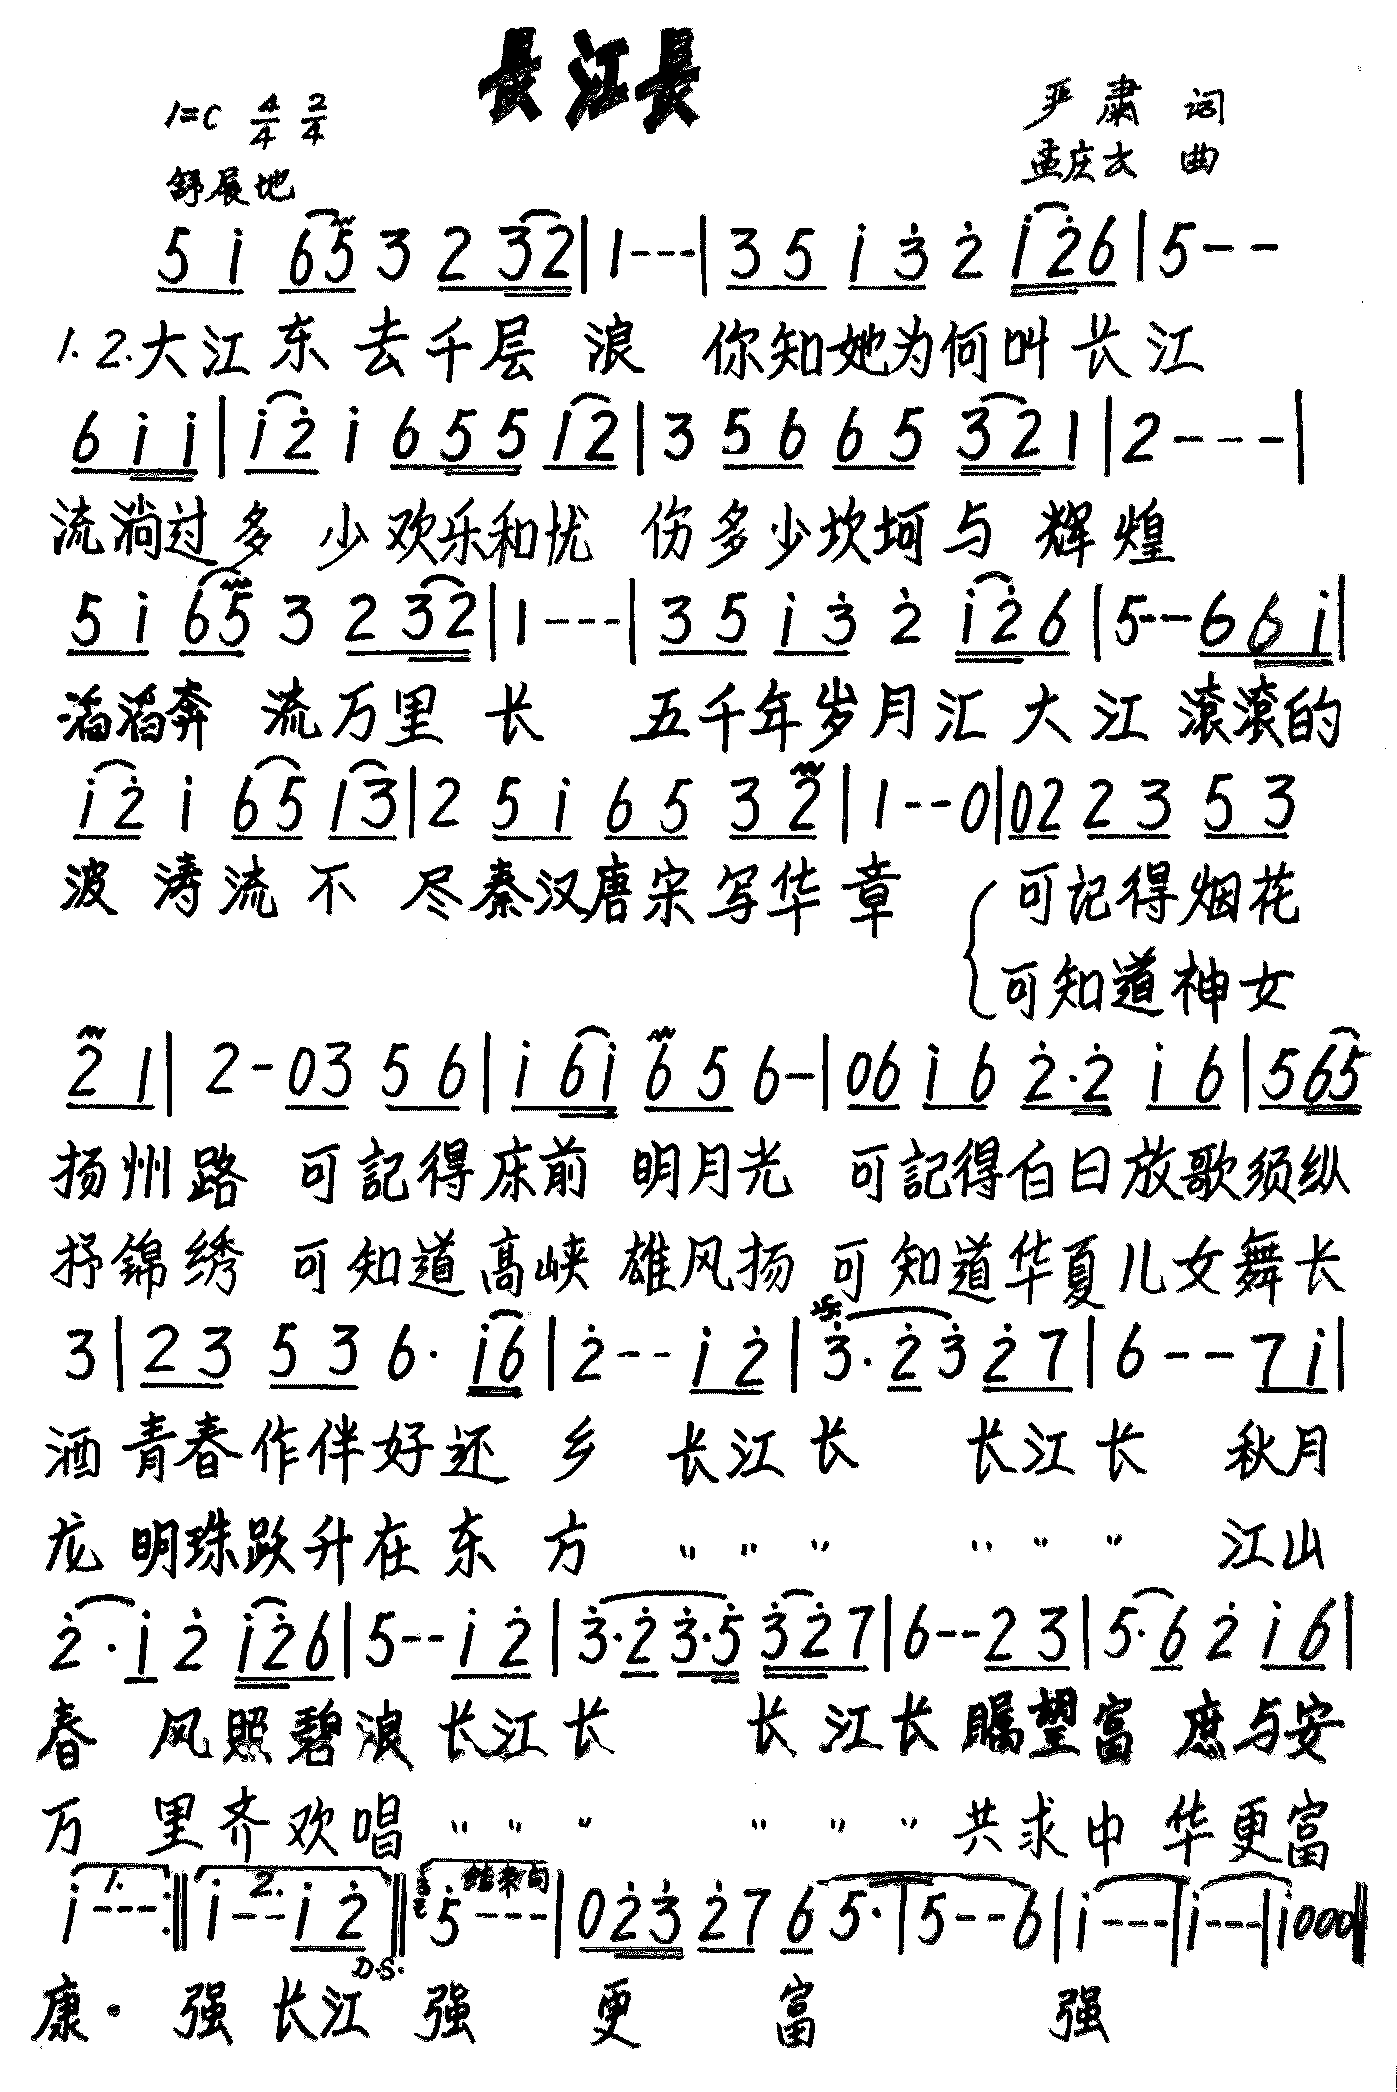 長江長
1=C 4/4 2/4
严肃 词
孟庆云 曲
舒展地
5 i 65 3 2 32 | 1 - - - | 3 5 i 3̇ 2̇ i2̇6 | 5 - -
1. 2. 大江东去千层浪 你知她为何叫长江
6 i i | i2̇ i 6 5 5 12 | 3 5 6 6 5 321 | 2 - - - |
流淌过多少欢乐和忧伤多少坎坷与辉煌
5 i 65 3 2 32 | 1 - - - | 3 5 i 3̇ 2̇ i2̇6 | 5 - - 6 6 i |
滔滔奔流万里长 五千年岁月汇大江滚滚的
i2̇ i 65 13 | 2 5 i 6 5 3 2 | 1 - - 0 | 02 2 3 5 3
波涛流不尽秦汉唐宋写华章 可记得烟花
可知道神女
2 1 | 2 - 03 5 6 | i 6i 6 5 6 - | 06 i 6 2̇·2̇ i 6 | 565
扬州路 可記得床前明月光 可記得白日放歌须纵
抒錦绣 可知道高峡雄风扬 可知道华夏儿女舞长
3 | 2 3 5 3 6· i6 | 2̇ - - i 2̇ | 3̇·2̇3̇ 2̇ 7 | 6 - - 7 i |
酒青春作伴好还乡 长江长 长江长 秋月
龙明珠跃升在东方 〃 〃 〃 〃 〃 〃 江山
2̇·i 2̇ i2̇6 | 5 - - i 2̇ | 3̇·2̇ 3̇·5̇ 3̇2̇7 | 6 - - 2 3 | 5·6 2̇ i 6 |
春风照碧浪长江长 长江长瞩望富庶与安
万里齐欢唱 〃 〃 〃 〃 〃 〃 共求中华更富
1. 2. 结束句
i - - - :‖ i - - i 2̇ ‖ 5̇ - - - | 0 2̇3̇ 2̇ 7 6 5· | 5 - - 6 | i - - - | i - - - | i 0 0 0 ‖
D.S.
康· 强 长江 强 更 富 强